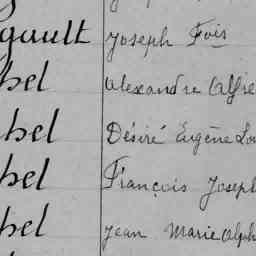 gault Joseph Fois
hel Alexandre Alfre
hel Désiré Eugène Lou
hel François Joseph
hel Jean Marie Alph